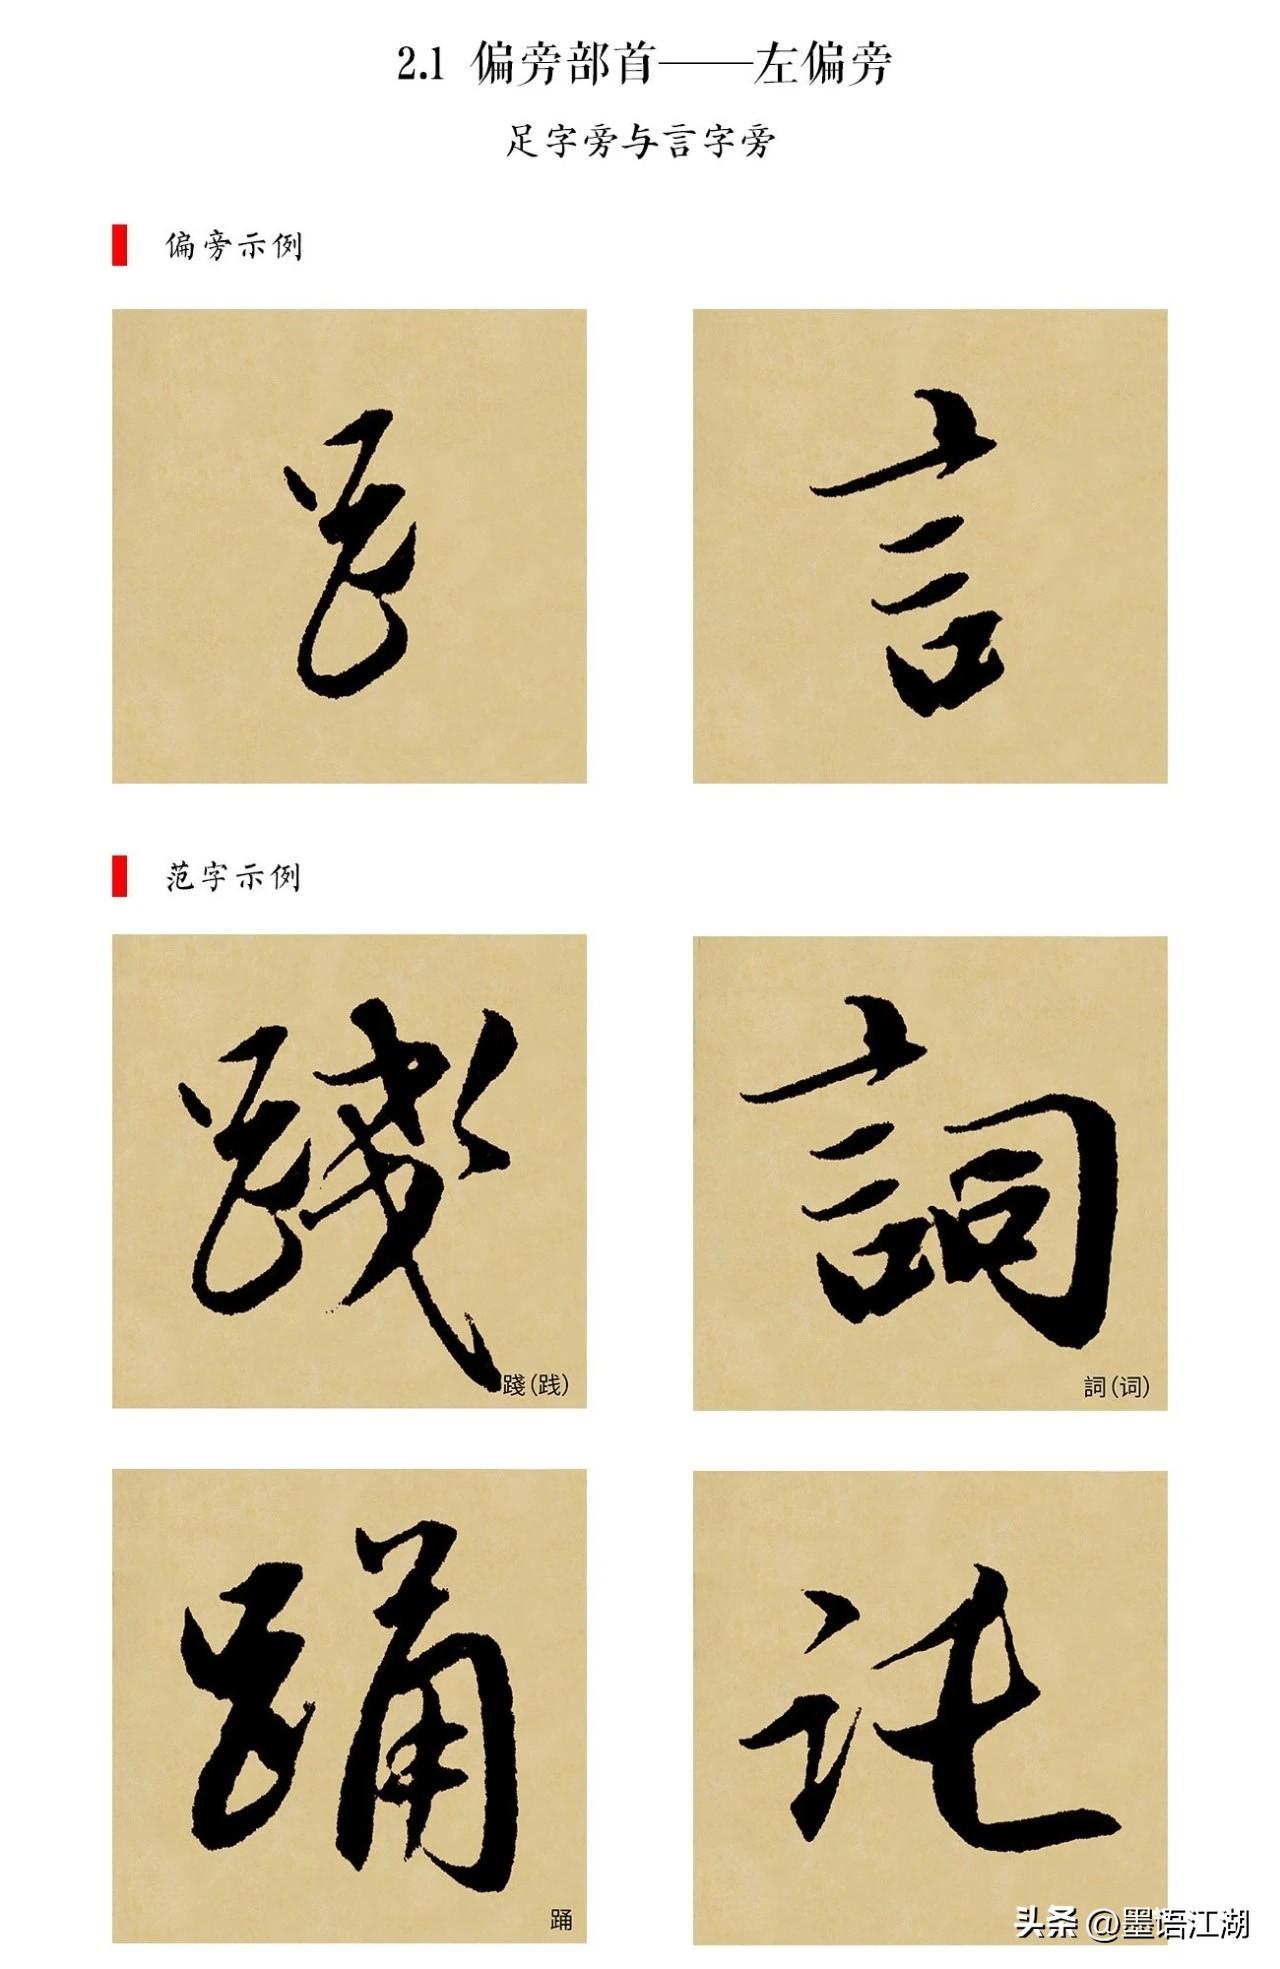 2.1 偏旁部首——左偏旁
足字旁与言字旁
偏旁示例
𧾷 言
范字示例
踐 詞
踐(践) 詞(词)
踊 託
踊
头条 @墨语江湖